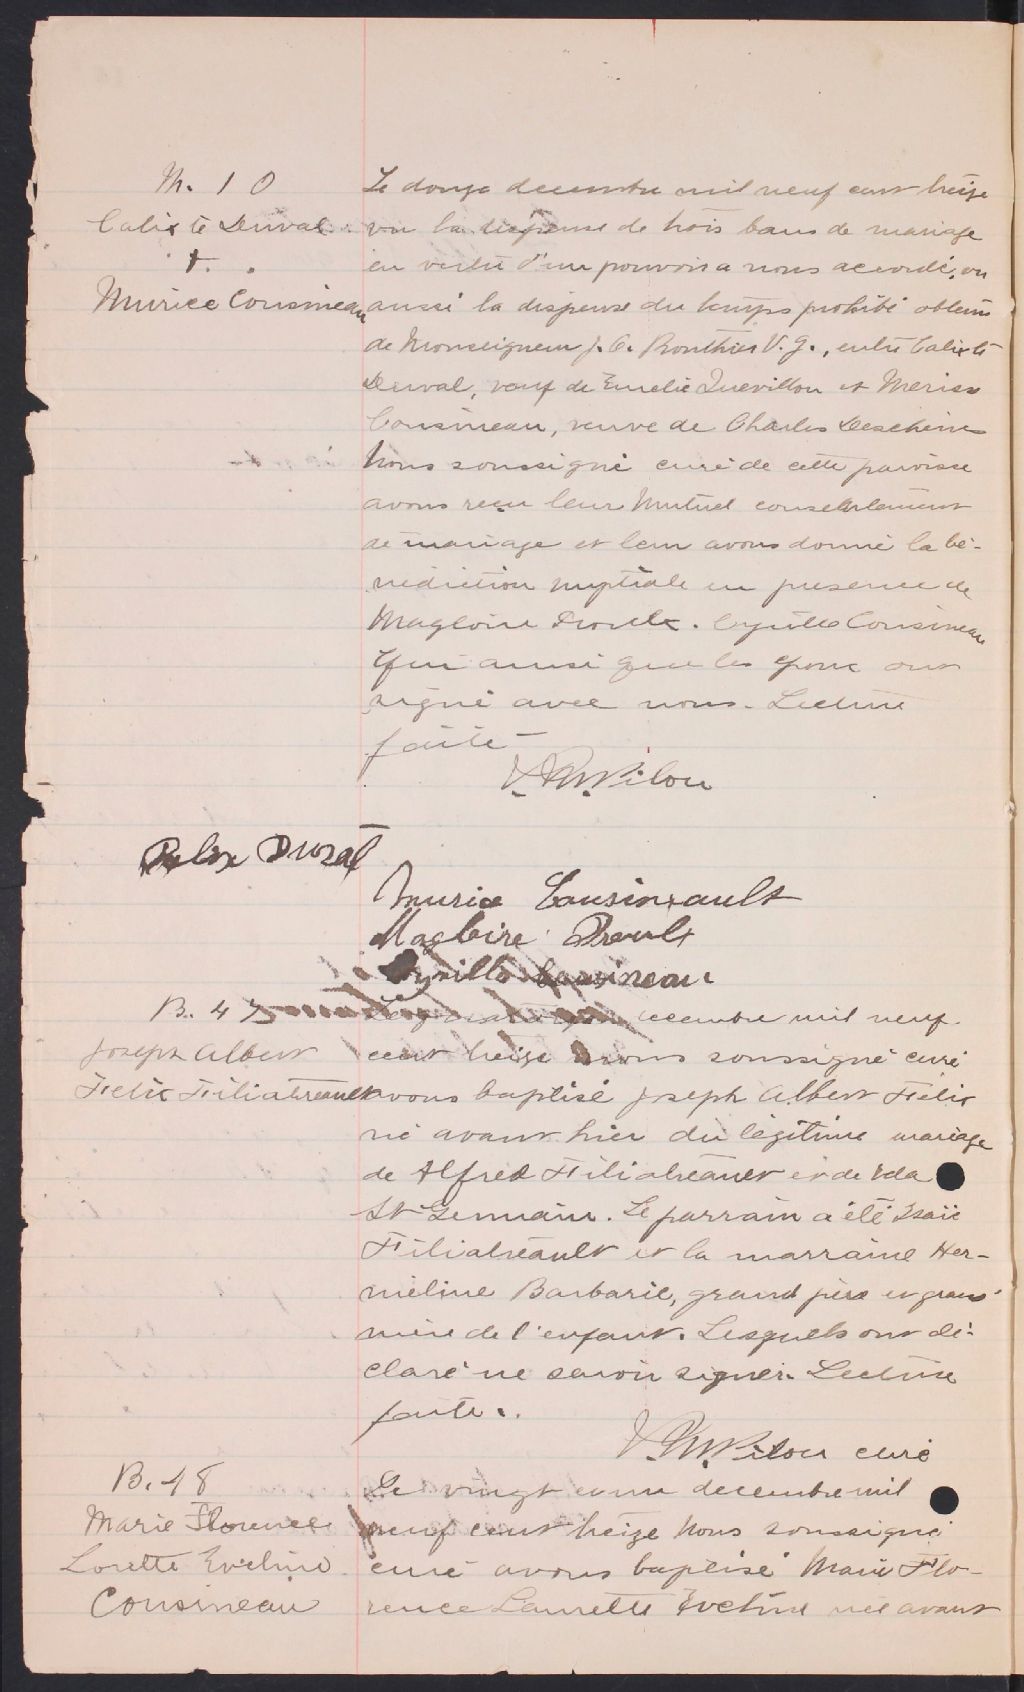 M. 10
Calixte Duval
+
Murice Cousineau
Le douze decembre mil neuf cent treize
vu la dispense de trois bans de mariage
en vertu d'un pouvoir a nous accordé, vu
aussi la dispense du temps prohibé obtenu
de Monseigneur J. C. Routhier V. G., entre Calixte
Duval, veuf de Emelie Quevillon et Merise
Cousineau, veuve de Charles Deschenes
Nous soussigné curé de cette paroisse
avons reçu leur Mutuel consentement
de mariage et leur avons donné la bé-
nédiction nuptiale en presence de
Magloire Proulx. Cyrille Cousineau
Qui ainsi que les epoux ont
signé avec nous. Lecture
faite
V. M. Pilon
Duval
Murice Cousineault
Magloire Proulx
Cyrille Cousineau
B. 47
Joseph Albert
Felix Filiatreault
decembre mil neuf
cent treize nous soussigné curé
avons baptisé Joseph Albert Felix
né avant hier du légitime mariage
de Alfred Filiatreault et de Eda
St Germain. Le parrain a été Isaïe
Filiatreault et la marraine Her-
méline Barbarie, grand père et grand
mère de l'enfant. Lesquels ont dé-
claré ne savoir signer. Lecture
faite.
V. M. Pilon curé
B. 48
Marie Florence
Lorette Eveline
Cousineau
Le vingt et un decembre mil
neuf cent treize Nous soussigné
curé avons baptisé Marie Flo-
rence Laurette Eveline née avant